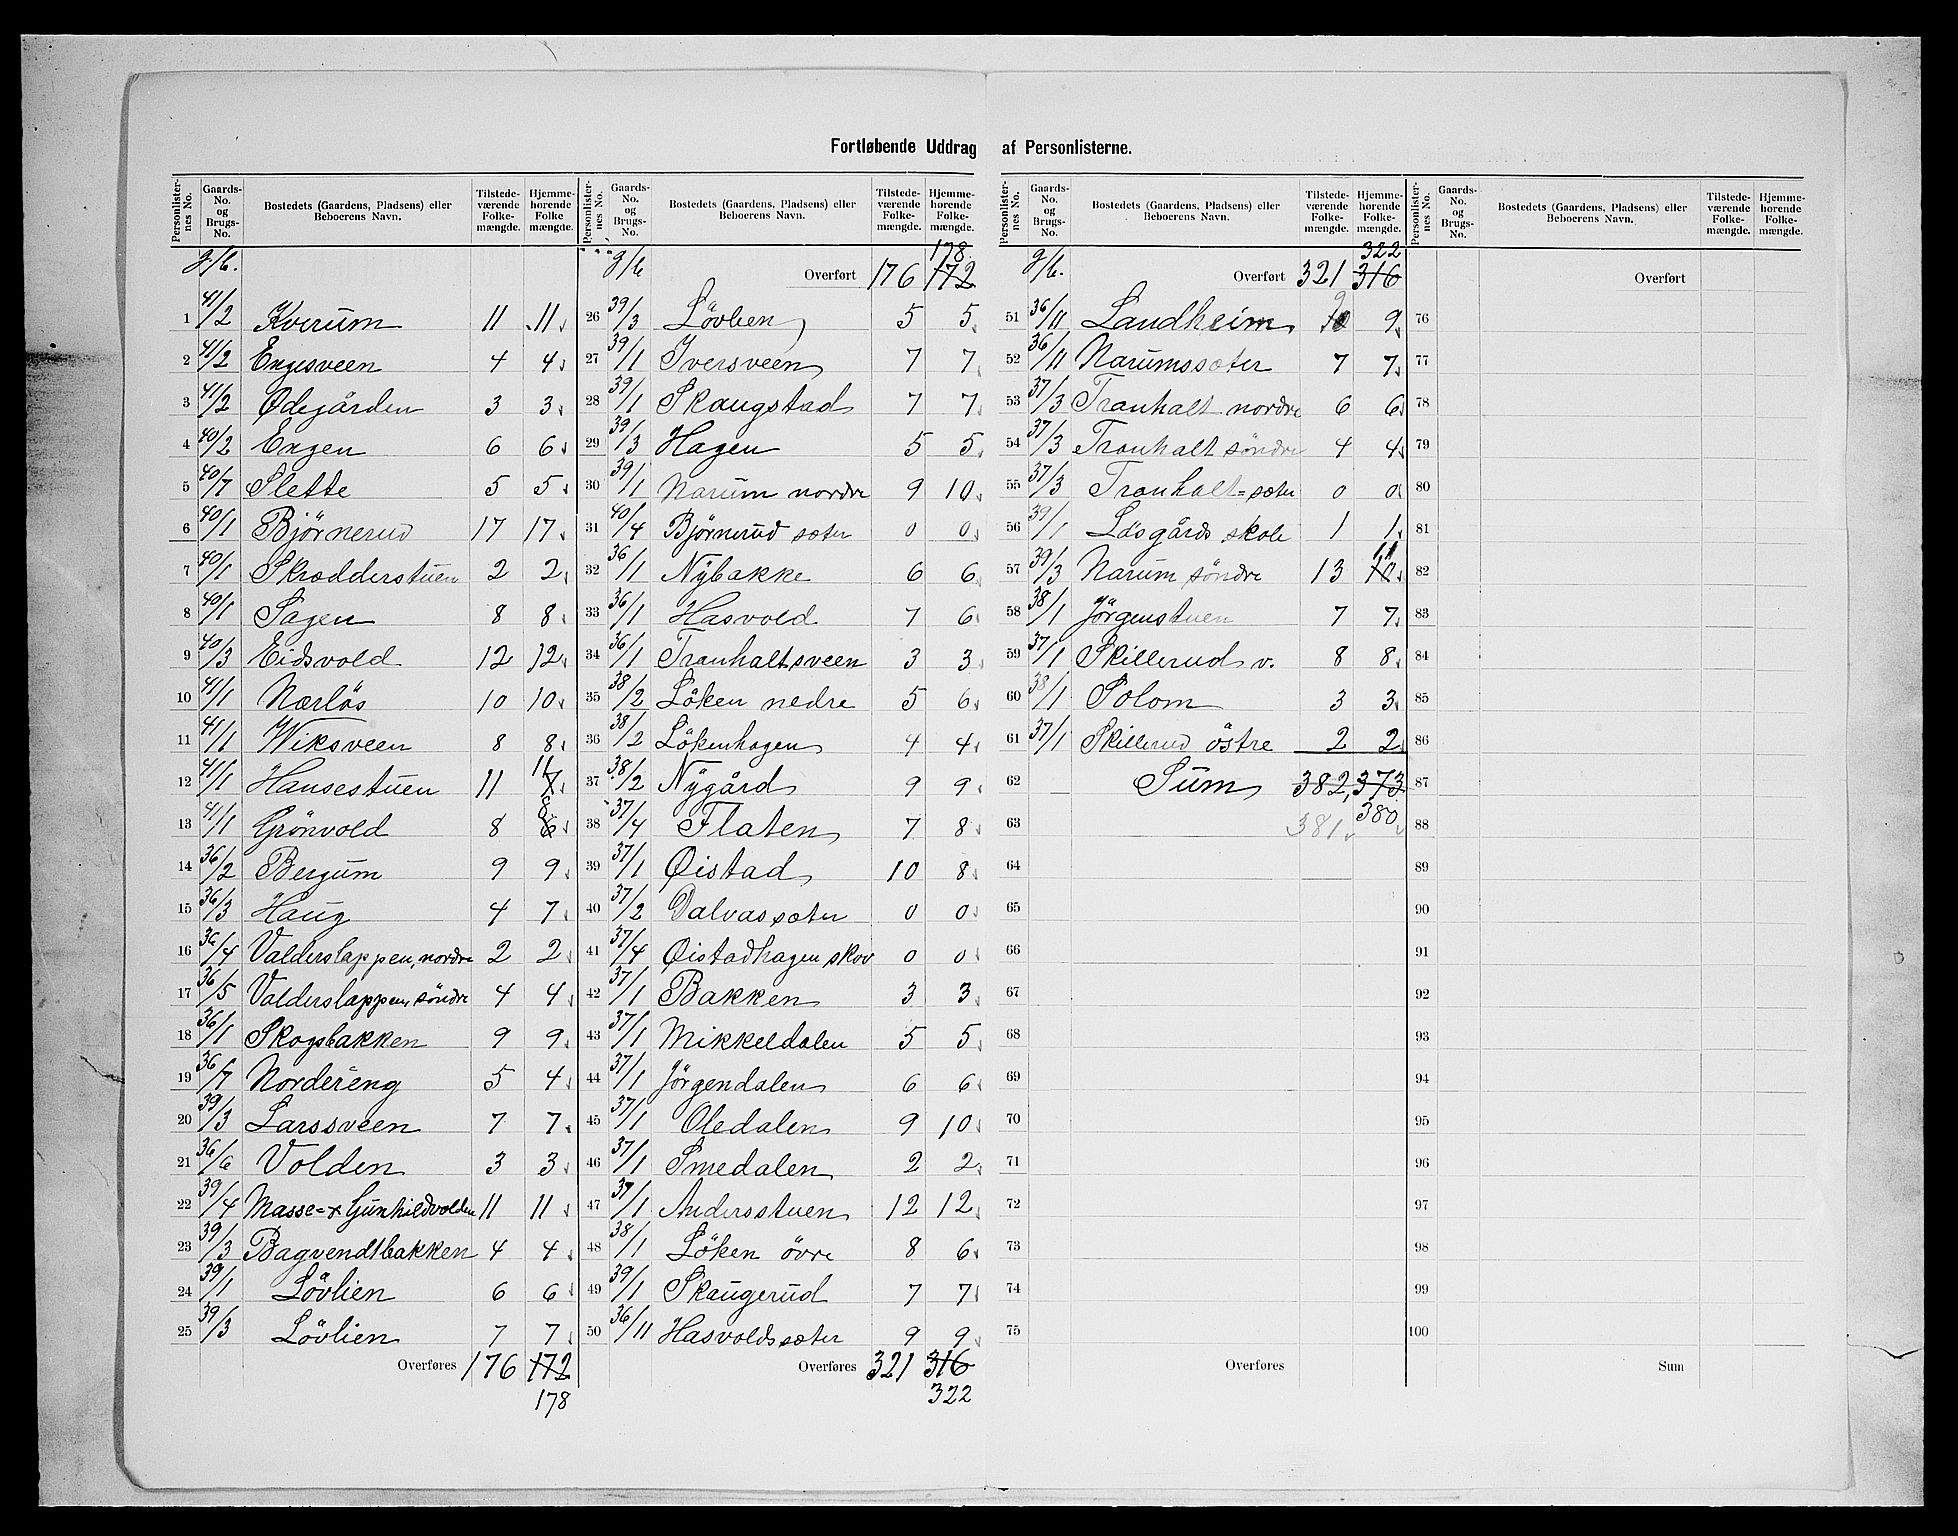 Fortløbende Uddrag af Personlisterne.
Personlisternes No. Gaards-No. og Brugs-No. Bostedets (Gaardens, Pladsens) eller Beboerens Navn. Tilstedeværende Folkemængde. Hjemmehørende Folkemængde.
g/b.
1 41/2 Kverum 11 11
2 41/2 Engesveen 4 4
3 41/2 Ødegården 3 3
4 40/2 Engen 6 6
5 40/7 Slette 5 5
6 40/1 Bjørnerud 17 17
7 40/1 Skrædderstuen 2 2
8 40/1 Sagen 8 8
9 40/3 Eidsvold 12 12
10 41/1 Nærlös 10 10
11 41/1 Wiksveen 8 8
12 41/1 Hansestuen 11 7 11
13 41/1 Grönvold 8 6 8
14 36/2 Bergum 9 9
15 36/3 Haug 4 7
16 36/4 Valderslappen, nordre 2 2
17 36/5 Valderslappen, söndre 4 4
18 36/1 Skogsbakken 9 9
19 36/7 Nordereng 5 4
20 39/3 Larssveen 7 7
21 36/6 Volden 3 3
22 39/4 Masse- & Gunhildvolden 11 11
23 39/3 Bagvendtbakken 4 4
24 39/1 Lövlien 6 6
25 39/3 Lövlien 7 7
Overføres 176 172
178
Personlisternes No. Gaards-No. og Brugs-No. Bostedets (Gaardens, Pladsens) eller Beboerens Navn. Tilstedeværende Folkemængde. Hjemmehørende Folkemængde.
178
g/b Overført 176 172
26 39/3 Lövlien 5 5
27 39/1 Iversveen 7 7
28 39/1 Skaugstad 7 7
29 39/3 Hagen 5 5
30 39/1 Narum nordre 9 10
31 40/4 Björnerud sæter 0 0
32 36/1 Nybakke 6 6
33 36/1 Hasvold 7 6
34 36/1 Tranhaltsveen 3 3
35 38/2 Löken nedre 5 6
36 38/2 Lökenhagen 4 4
37 38/2 Nygård 9 9
38 37/4 Flaten 7 8
39 37/1 Øistad 10 8
40 37/2 Dalvassæter 0 0
41 37/4 Øistadhagen skov 0 0
42 37/1 Bakken 3 3
43 37/1 Mikkeldalen 5 5
44 37/1 Jörgendalen 6 6
45 37/1 Oledalen 9 10
46 37/1 Smedalen 2 2
47 37/1 Andersstuen 12 12
48 38/1 Löken övre 8 6
49 39/1 Skaugerud 7 7
50 36/11 Hasvoldsæter 9 9
Overføres 321 316
322
Personlisternes No. Gaards-No. og Brugs-No. Bostedets (Gaardens, Pladsens) eller Beboerens Navn. Tilstedeværende Folkemængde. Hjemmehørende Folkemængde.
322
g/b. Overført 321 316
51 36/11 Landheim 10 9 9
52 36/11 Narumssæter 7 7
53 37/3 Tranhalt nordre 6 6
54 37/3 Tranhalt söndre 4 4
55 37/3 Tranhalt=sæter 0 0
56 39/1 Låsgårds skole 1 1
57 39/3 Narum söndre 13 10 11
58 38/1 Jörgenstuen 7 7
59 37/1 Skillerud v. 8 8
60 38/1 Solom 3 3
61 37/1 Skillerud östre 2 2
62 Sum 382, 373
63 381 380
64
65
66
67
68
69
70
71
72
73
74
75
Overføres
Personlisternes No. Gaards-No. og Brugs-No. Bostedets (Gaardens, Pladsens) eller Beboerens Navn. Tilstedeværende Folkemængde. Hjemmehørende Folkemængde.
Overført
76
77
78
79
80
81
82
83
84
85
86
87
88
89
90
91
92
93
94
95
96
97
98
99
100
Sum